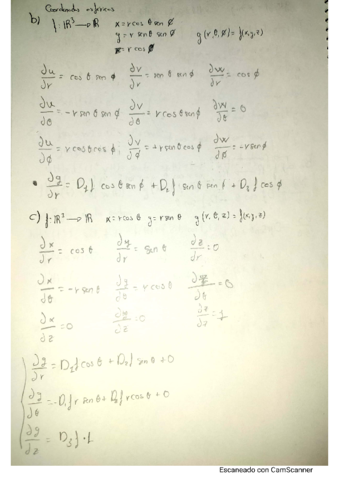 Coordenadas esféricas
b) f: ℝ³ → ℝ x = r cos θ sen ϕ
y = r sen θ sen ϕ g(r, θ, ϕ) = f(x,y,z)
z = r cos ϕ
∂u/∂r = cos θ sen ϕ ∂v/∂r = sen θ sen ϕ ∂w/∂r = cos ϕ
∂u/∂θ = -r sen θ sen ϕ ∂v/∂θ = r cos θ sen ϕ ∂w/∂θ = 0
∂u/∂ϕ = r cos θ cos ϕ, ∂v/∂ϕ = +r sen θ cos ϕ ∂w/∂ϕ = -r sen ϕ
• ∂g/∂r = D₁f cos θ sen ϕ + D₂f sen θ sen ϕ + D₃f cos ϕ
c) f: ℝ³ → ℝ x = r cos θ y = r sen θ g(r, θ, z) = f(x,y,z)
∂x/∂r = cos θ ∂y/∂r = sen θ ∂z/∂r = 0
∂x/∂θ = -r sen θ ∂y/∂θ = r cos θ ∂z/∂θ = 0
∂x/∂z = 0 ∂y/∂z = 0 ∂z/∂z = 1
∂g/∂r = D₁f cos θ + D₂f sen θ + 0
∂g/∂θ = -D₁f r sen θ + D₂f r cos θ + 0
∂g/∂z = D₃f · 1
Escaneado con CamScanner